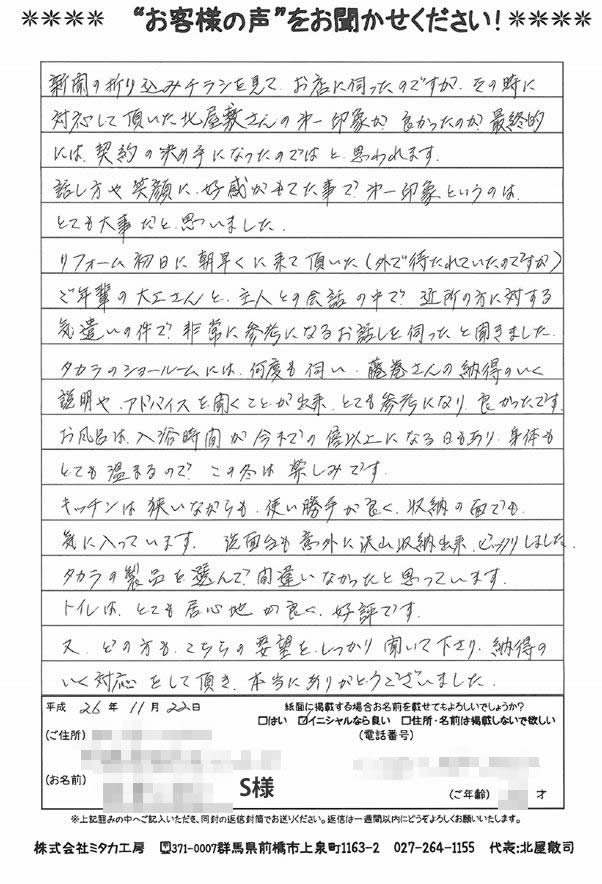 ＊＊＊＊ “お客様の声”をお聞かせください！＊＊＊＊
新聞の折り込みチラシを見て、お店に伺ったのですが、その時に
対応して頂いた北屋敷さんの第一印象が良かったのが最終的
には、契約の決め手になったのではと、思われます。
話し方や笑顔に、好感がもてた事で、第一印象というのは、
とても大事だと思いました。
リフォーム初日に、朝早くに来て頂いた（外で待たれていたのですが）
ご年輩の大工さんと、主人との会話の中で、近所の方に対する
気遣いの件で、非常に参考になるお話しを伺ったと聞きました。
タカラのショールームには、何度も伺い、藤巻さんの納得のいく
説明や、アドバイスを聞くことが出来、とても参考になり、良かったです。
お風呂は、入浴時間が今までの倍以上になる日もあり、身体も
とても温まるので、この冬は楽しみです。
キッチンは狭いながらも、使い勝手が良く、収納の面でも、
気に入っています。洗面台も意外に沢山収納出来、ビックリしました。
タカラの製品を選んで、間違いなかったと思っています。
トイレは、とても居心地が良く、好評です。
又、どの方も、こちらの要望を、しっかり聞いて下さり、納得の
いく対応をして頂き、本当にありがとうございました。
平成 26年 11月 22日 紙面に掲載する場合お名前を載せてもよろしいでしょうか？
□はい ☑イニシャルなら良い □住所・名前は掲載しないで欲しい
（ご住所） （電話番号）
（お名前） S様 （ご年齢） 才
※上記囲みの中へご記入いただき、同封の返信封筒でお送りください。返信は一週間以内にどうぞよろしくお願いいたします。
株式会社ミタカ工房 〒371-0007群馬県前橋市上泉町1163-2 027-264-1155 代表:北屋敷司